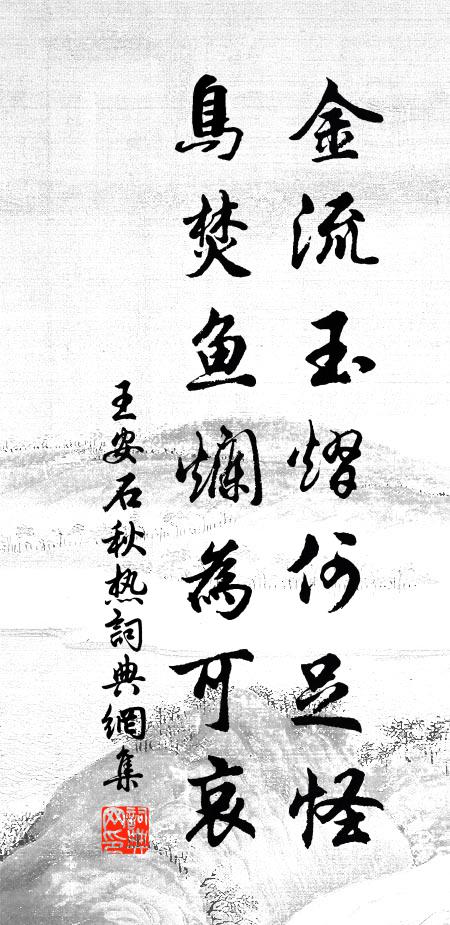 金流玉熠何足怪
鳥焚魚爛為可哀
王安石秋热詞典網集